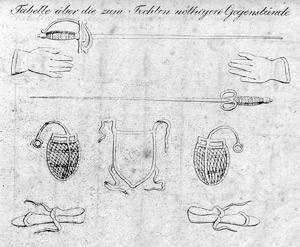 Tabelle über die zum Fechten nöthigen Gegenstände